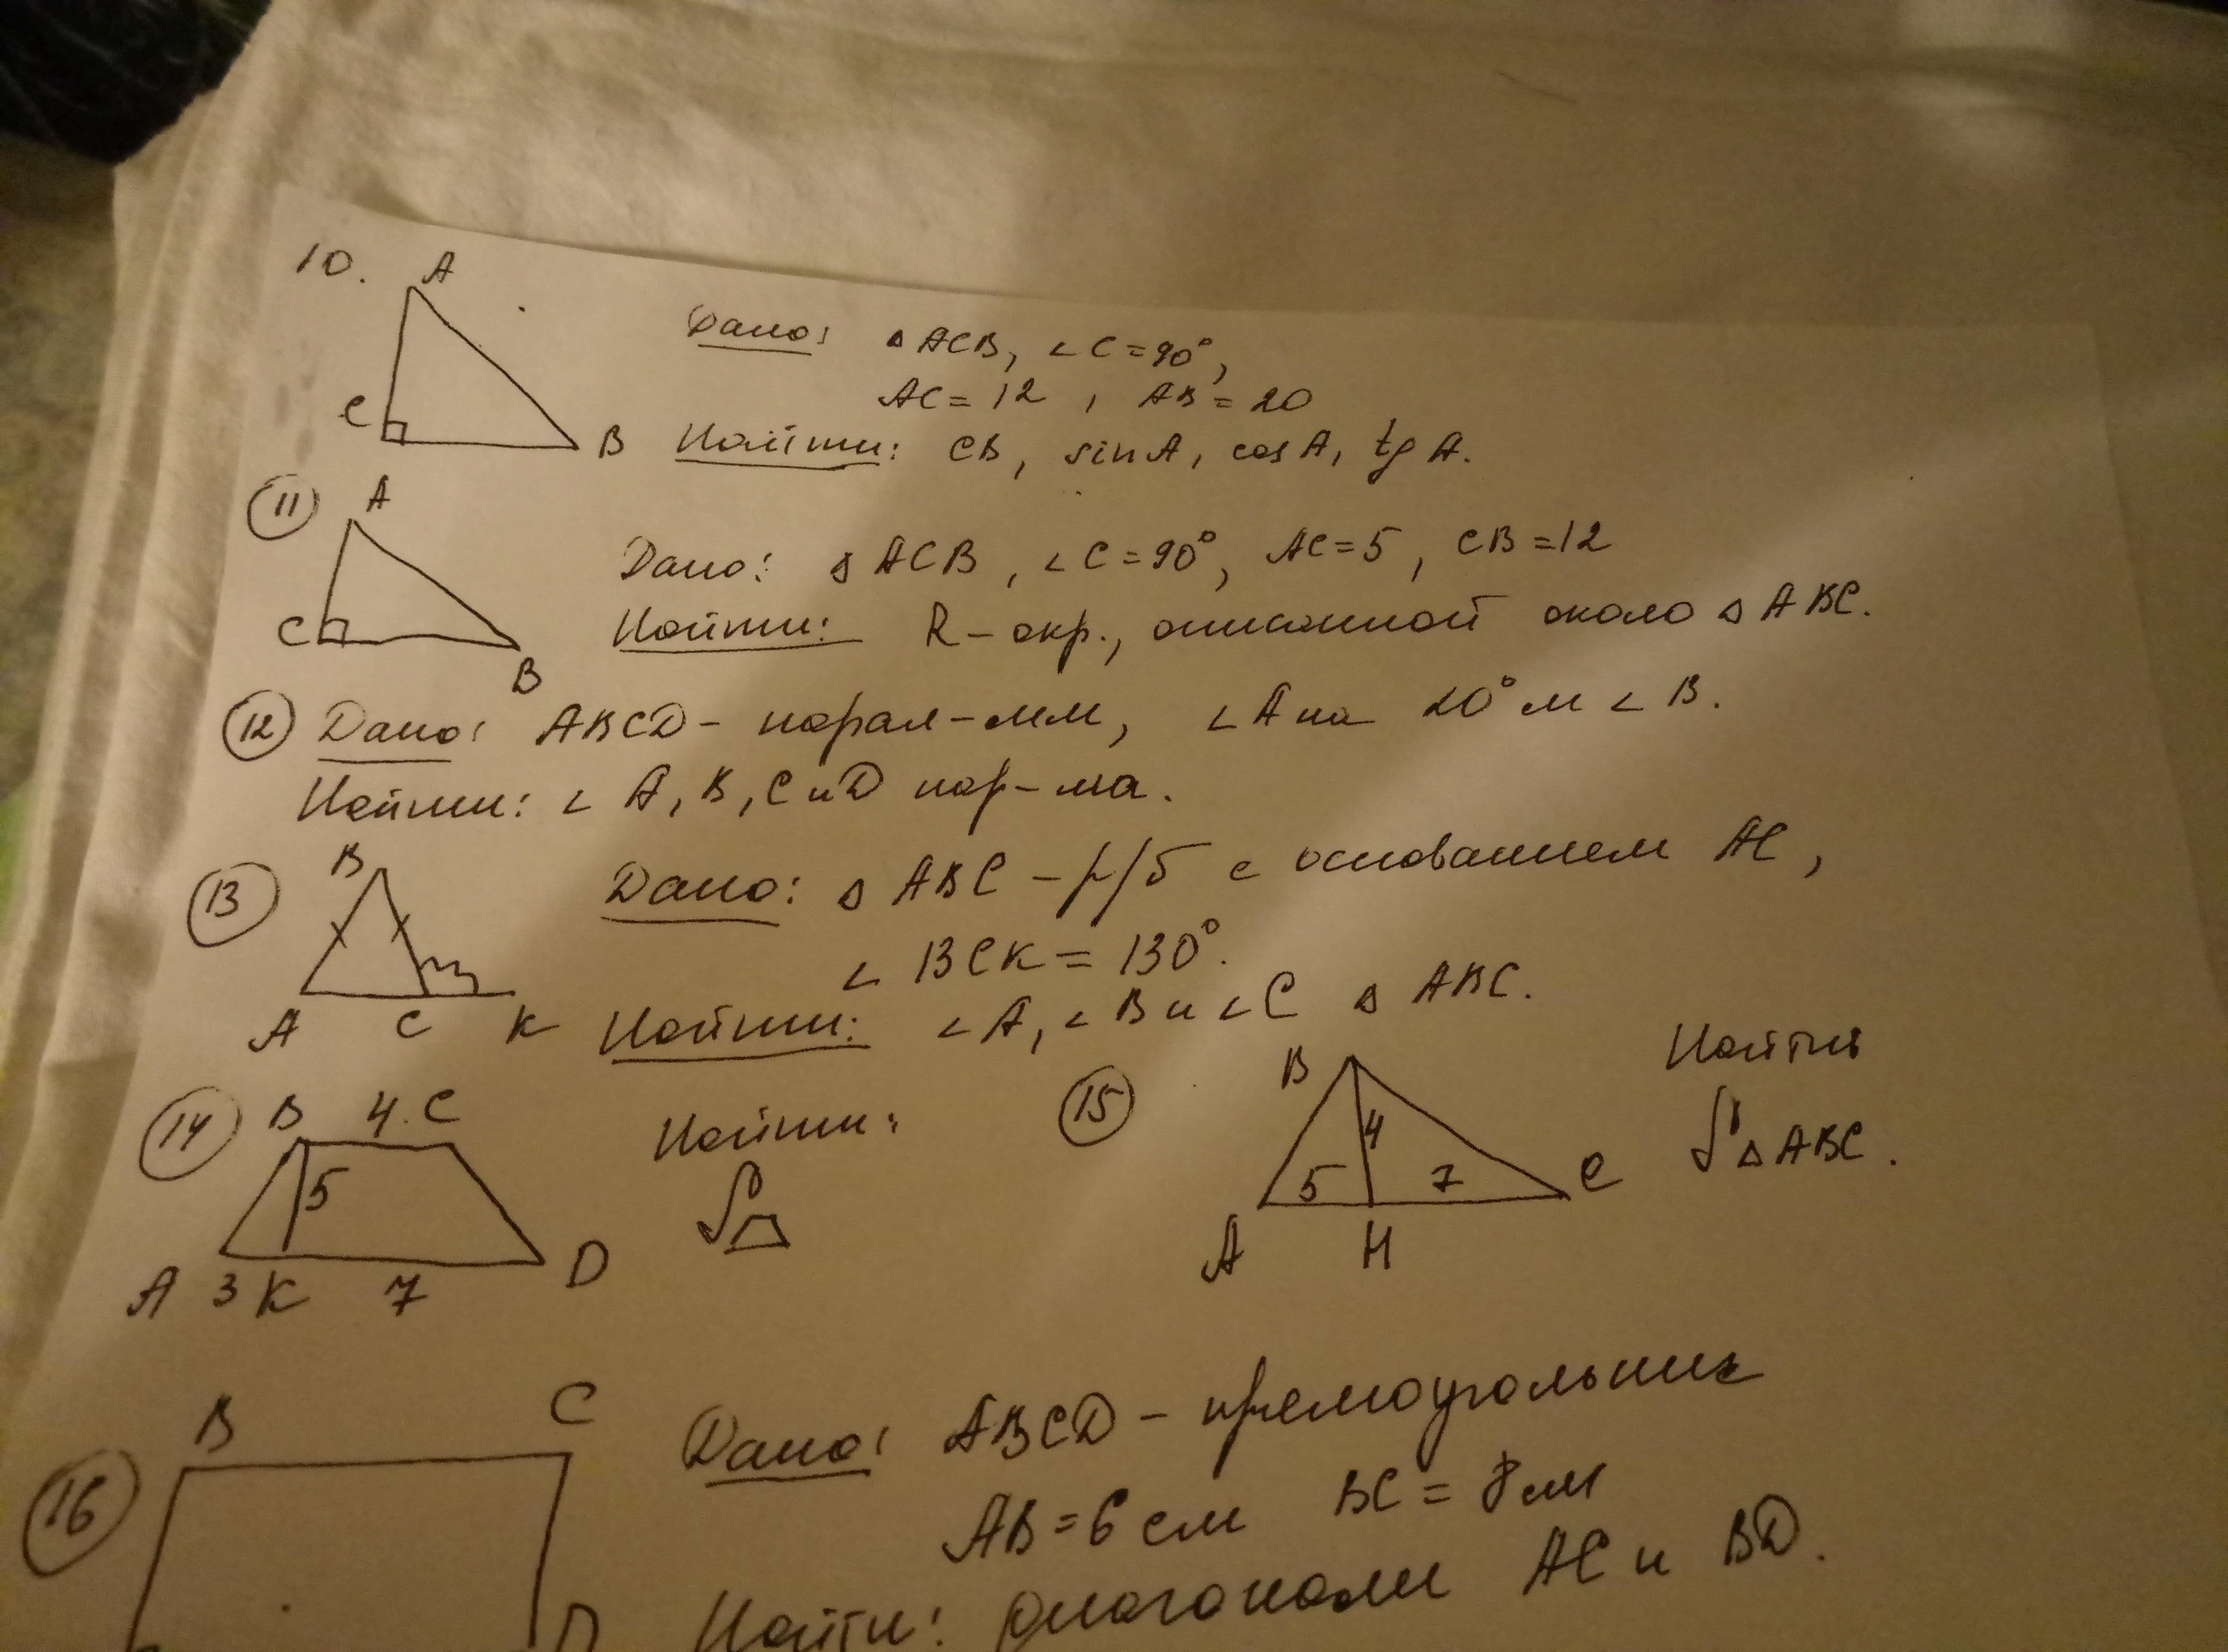 10.
A
C
B
Дано: △ ACB, ∠C=90°,
AC=12, AB=20
Найти: CB, sinA, cosA, tgA.
11
A
C
B
Дано: △ ACB, ∠C=90°, AC=5, CB=12
Найти: R-окр., описанной около △ ABC.
12 Дано: ABCD- парал-мм, ∠A на 20° м ∠ B.
Найти: ∠ A, B, C и D пар-ма.
13
B
A C K
Дано: △ ABC - р/б с основанием AC,
∠ BCK = 130°.
Найти: ∠A, ∠B и ∠C △ ABC.
14
B 4 C
5
A 3 K 7 D
Найти:
S
15
B
4
5 7 C
A H
Найти
S △ ABC.
16
B C
D
Дано: ABCD - прямоугольник
AB=6 см BC=8 см
Найти: диагонали AC и BD.